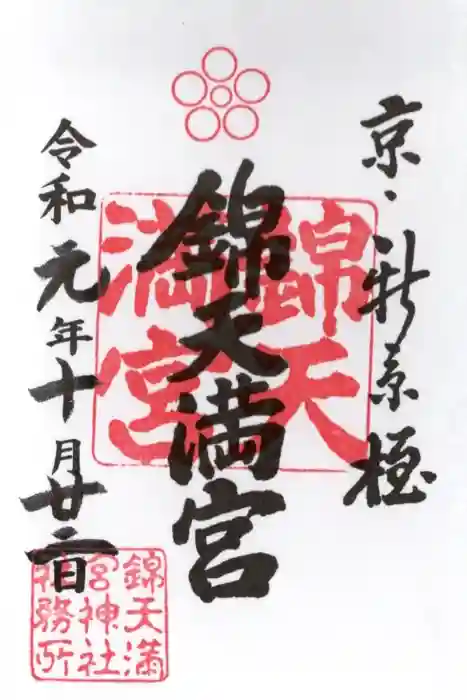 京・新京極
錦天満宮
錦天満宮
令和元年十月廿二日
錦天満宮神社社務所